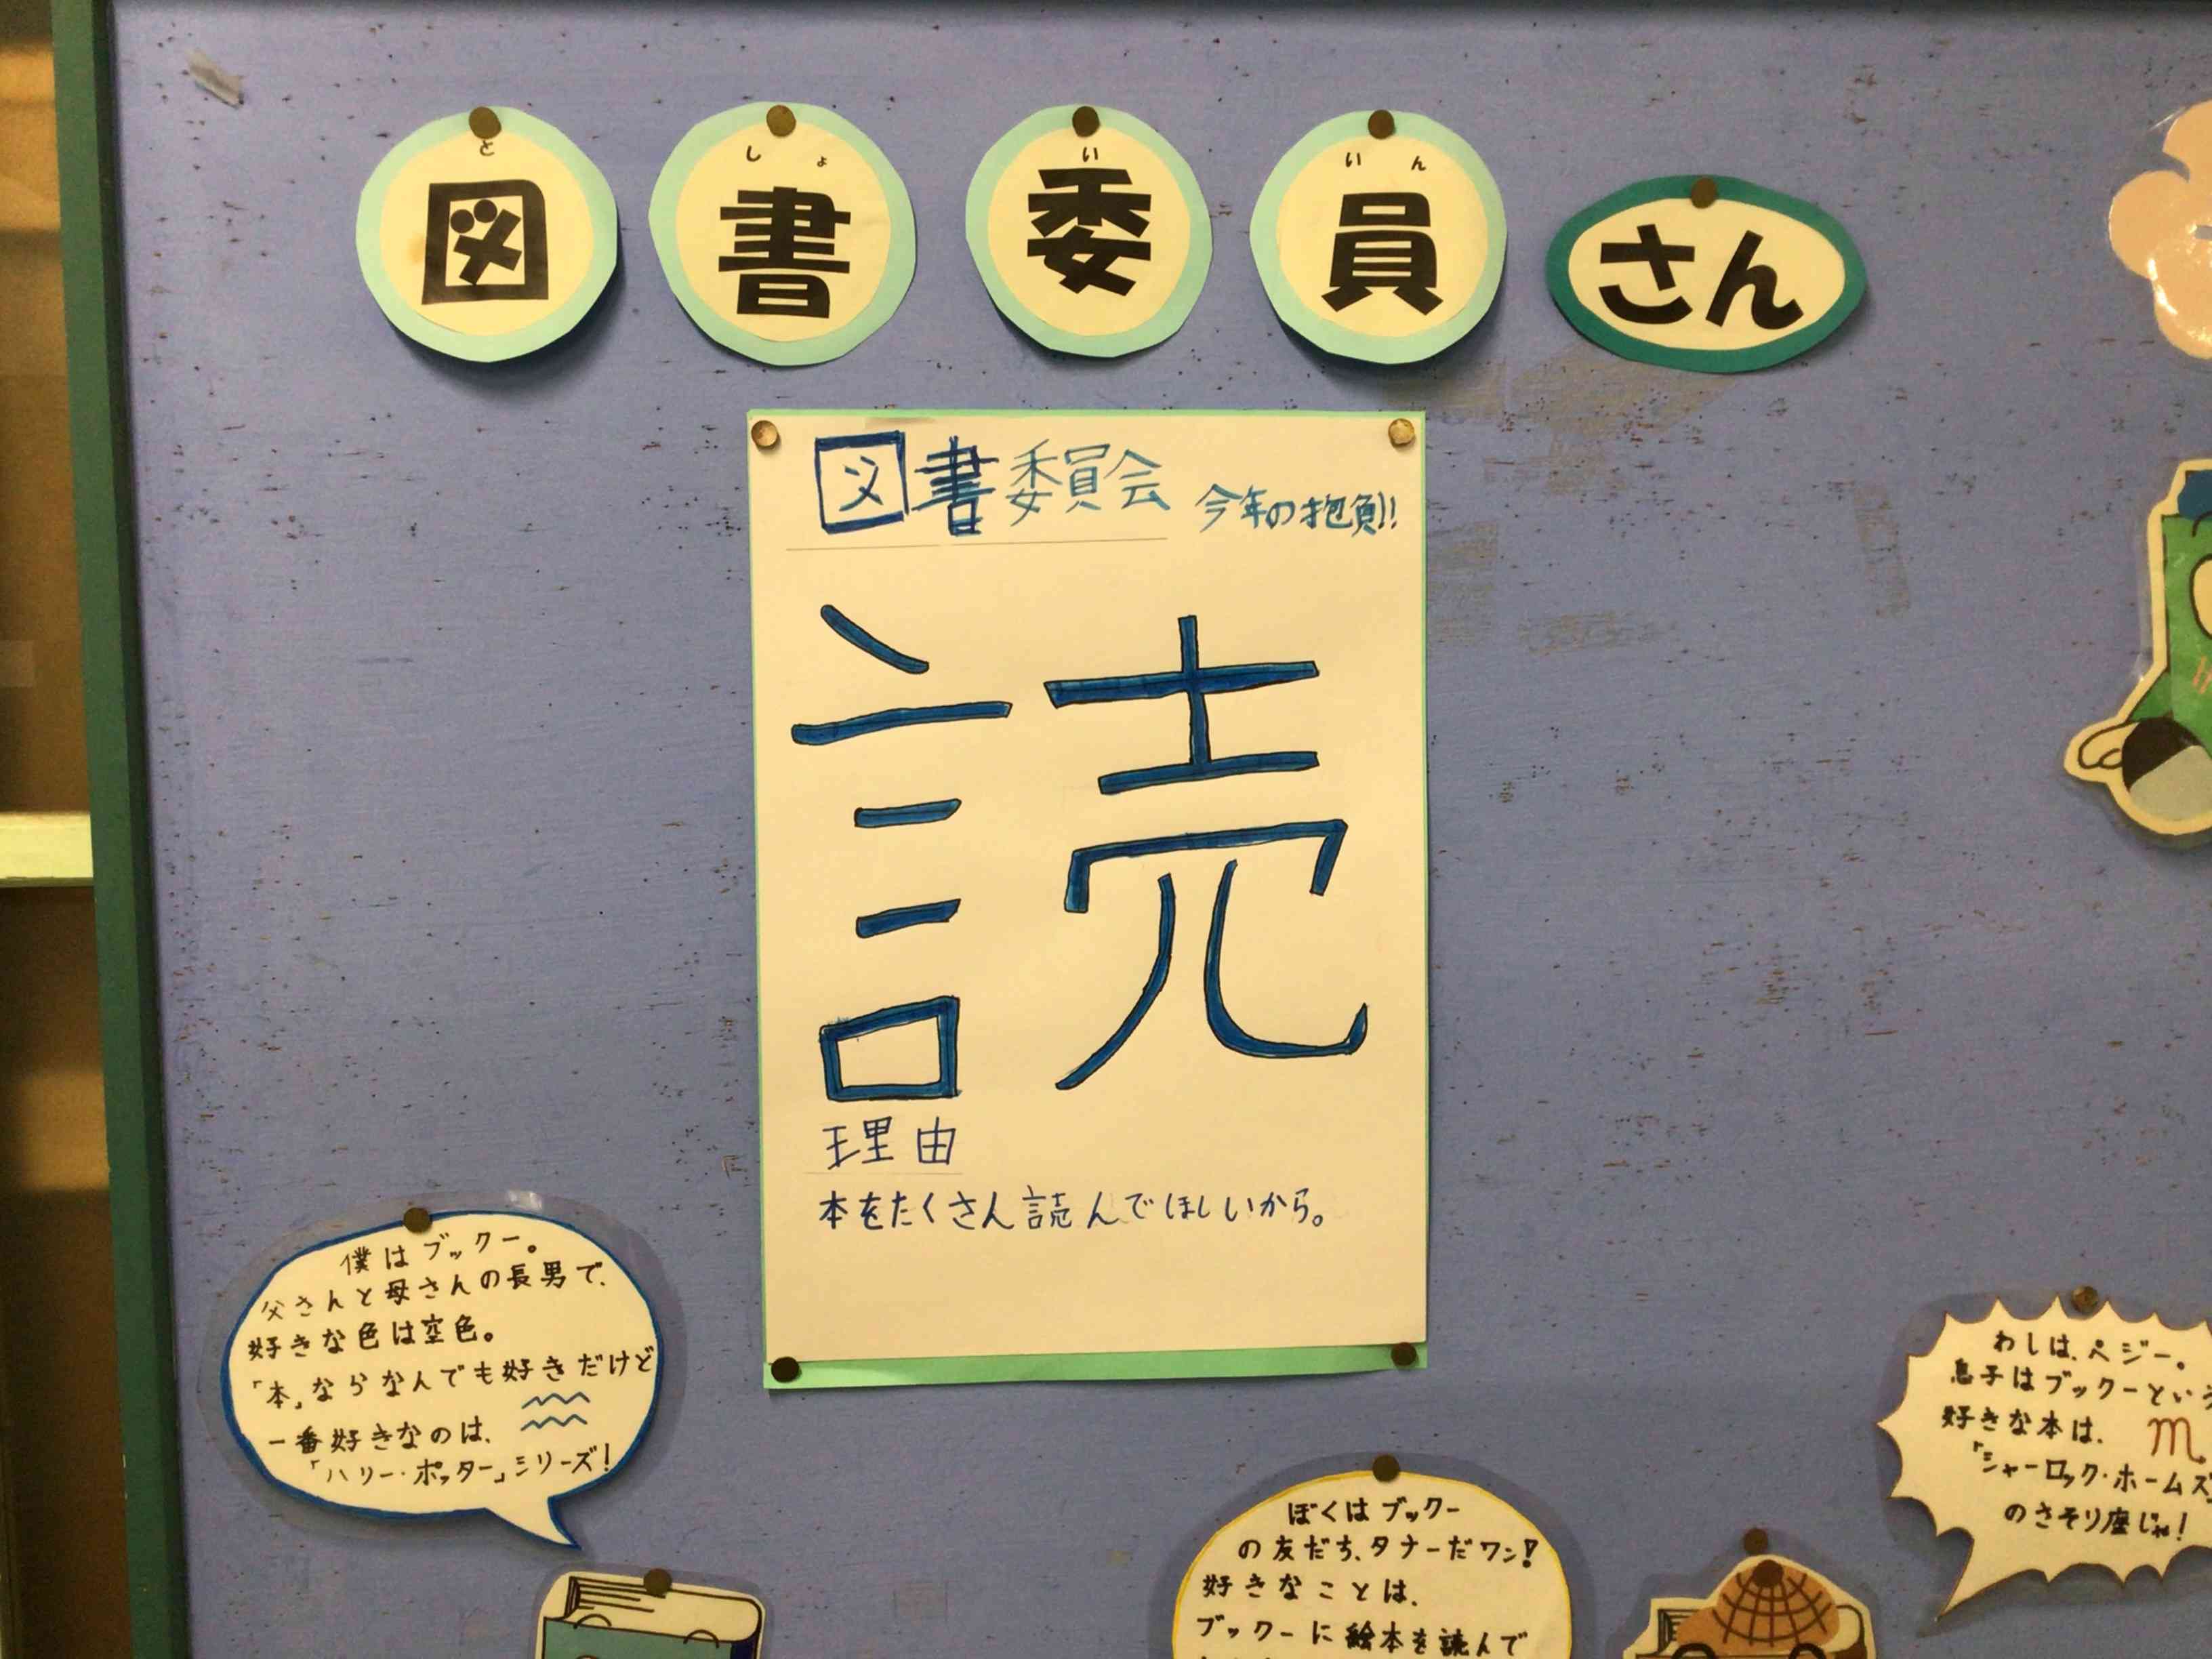 と しょ い いん
図書委員さん
図書委員会 今年の抱負!!
読
理由
本をたくさん読んでほしいから。
僕はブックー。
父さんと母さんの長男で、
好きな色は空色。
「本」ならなんでも好きだけど
一番好きなのは、
「ハリー・ポッター」シリーズ!
ぼくはブックー
の友だち、タナーだワン!
好きなことは、
ブックーに絵本を読んで
わしは、ペジー。
息子はブックーという
好きな本は、
「シャーロック・ホームズ
のさそり座じゃ!